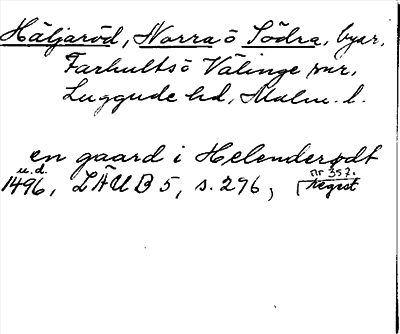 Häljaröd, Norra o Södra, byar,
Farhults o Välinge snr,
Luggude hd, Malm. l.
en gaard i Helenderødt
u.d. nr 357.
1496, LÄUB 5, s. 296, Regest